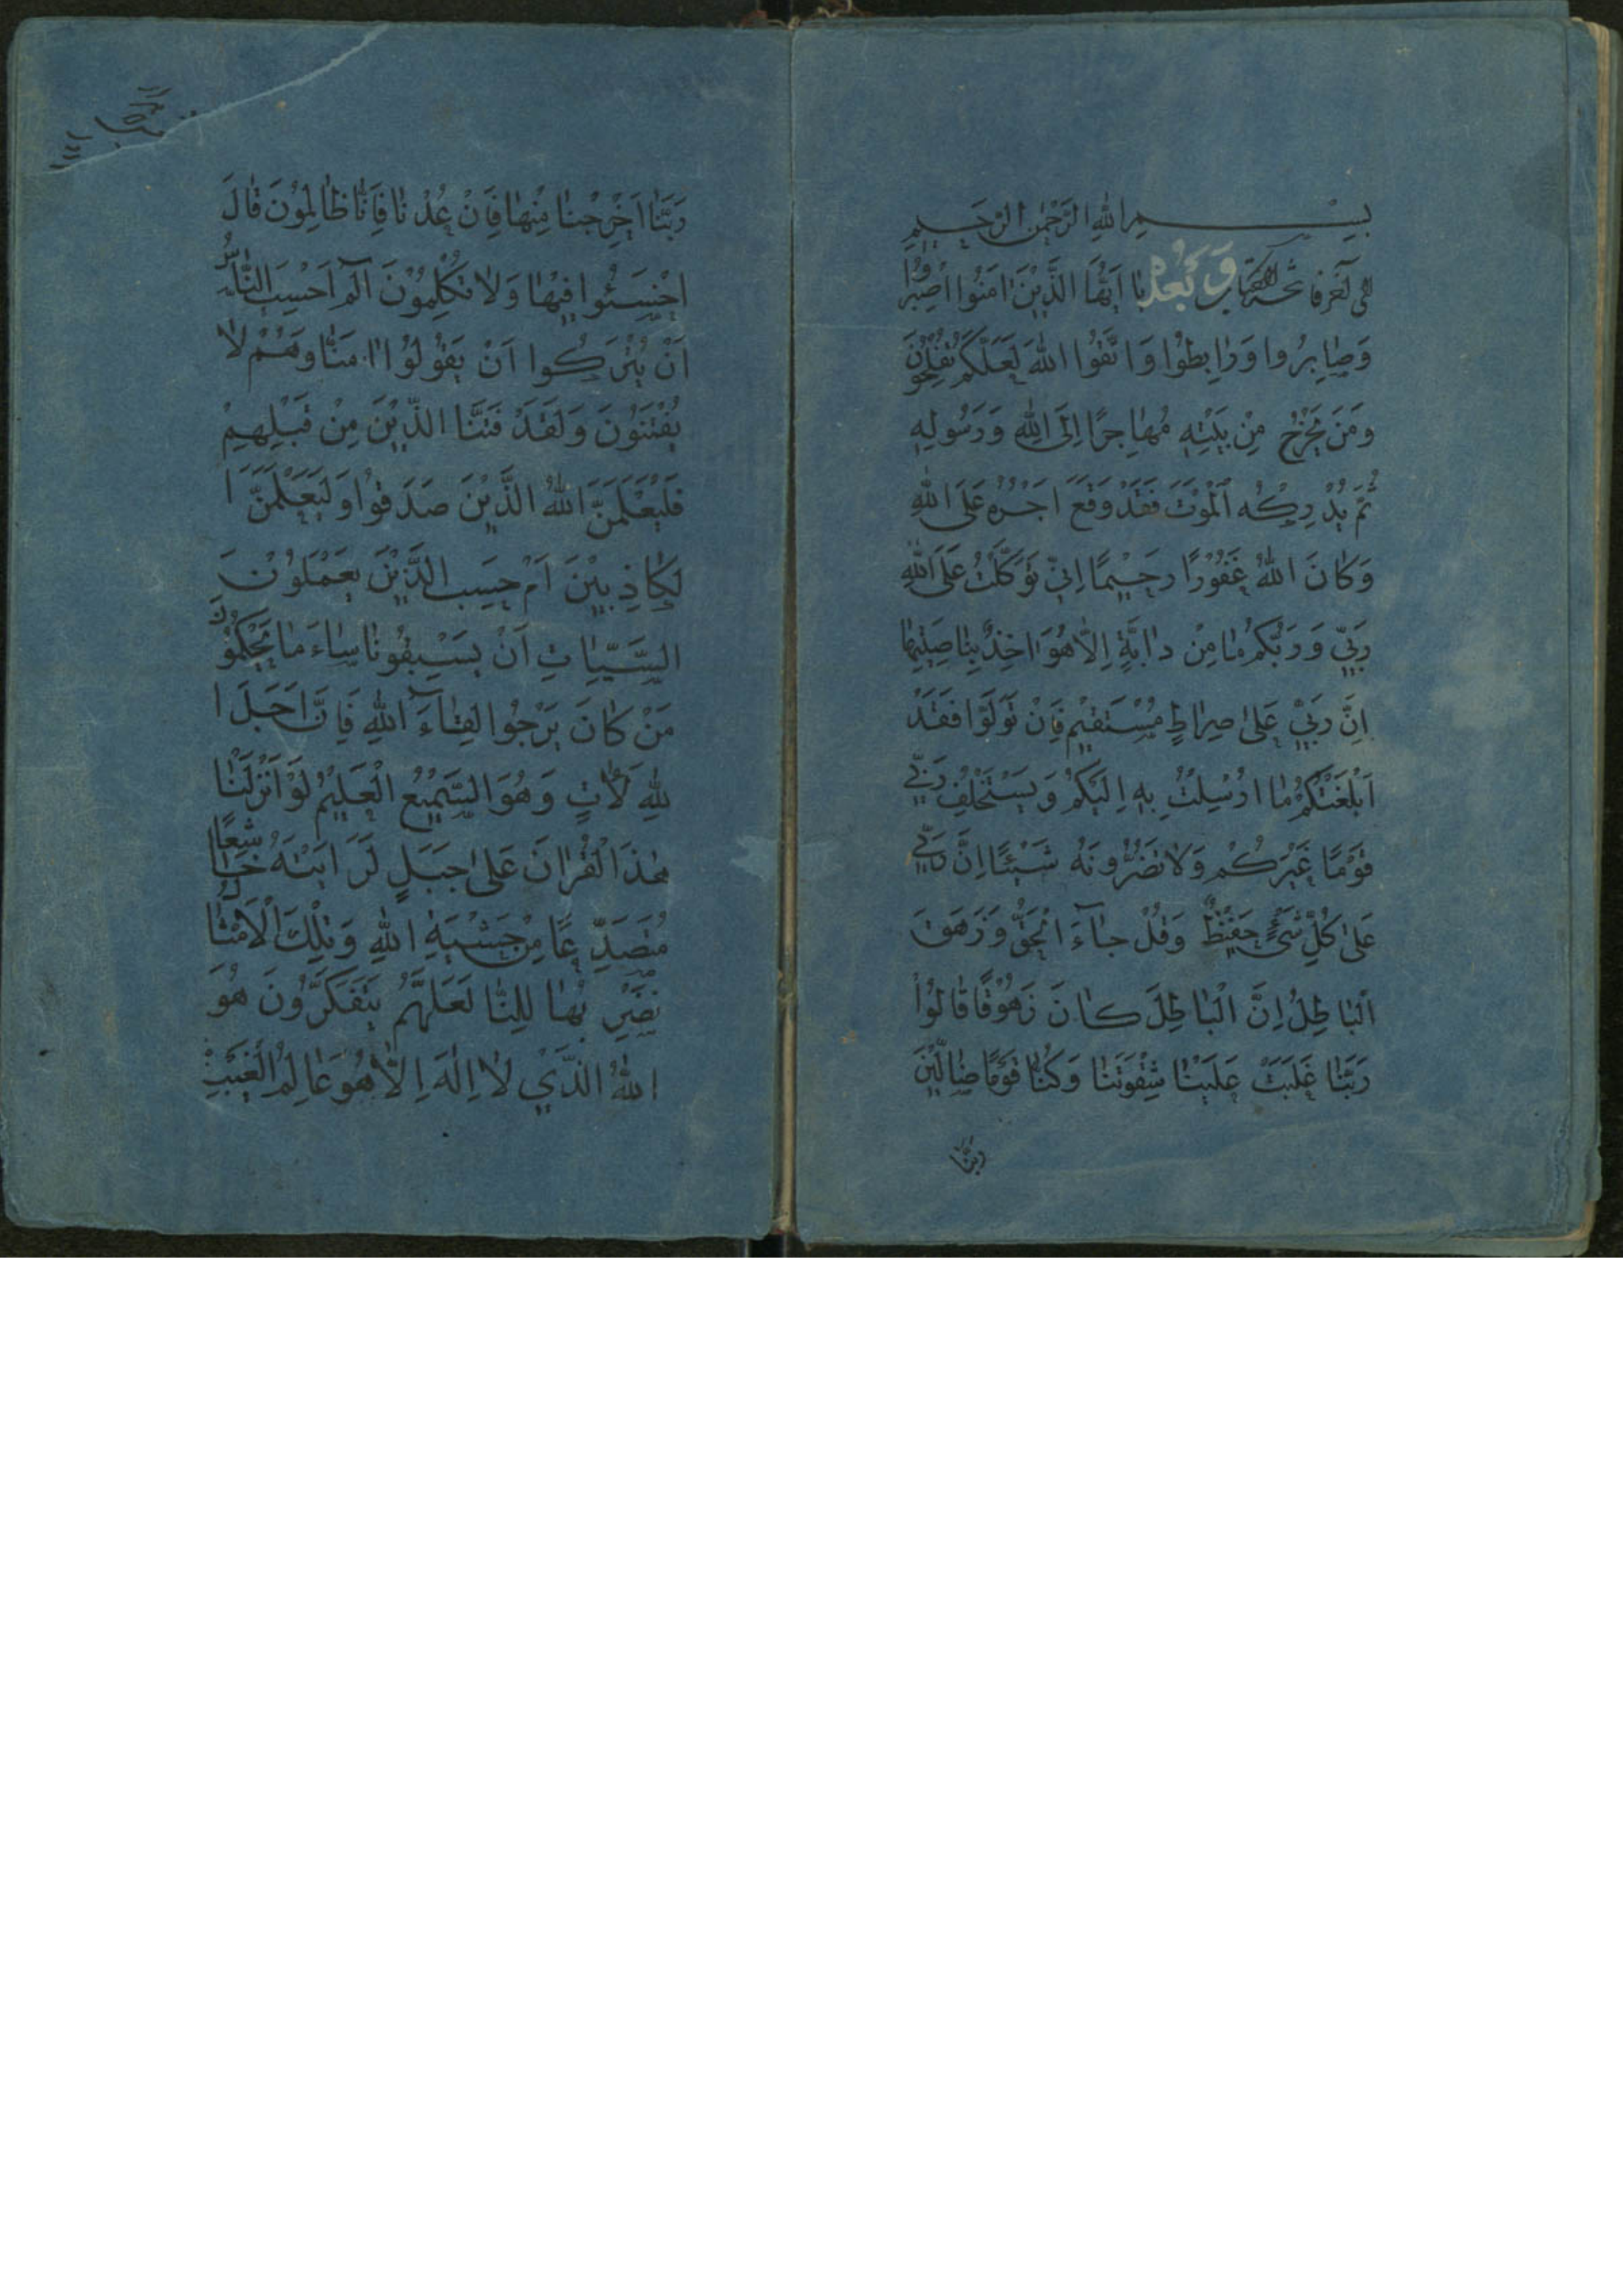 بِسْمِ اللّٰهِ الرَّحْمٰنِ الرَّحِيمِ
فاتحة الكتاب وَبَعْدُ يَا اَيُّهَا الَّذِيْنَ اٰمَنُوا اصْبِرُوا
وَصَابِرُوا وَرَابِطُوْا وَاتَّقُوْا اللّٰهَ لَعَلَّكُمْ تُفْلِحُوْنَ
وَمَنْ يَخْرُجْ مِنْ بَيْتِهِ مُهَاجِرًا اِلَى اللّٰهِ وَرَسُولِهِ
ثُمَّ يُدْرِكْهُ الْمَوْتُ فَقَدْ وَقَعَ اَجْرُهُ عَلَى اللّٰهِ
وَكَانَ اللّٰهُ غَفُوْرًا رَحِيْمًا اِنِّي تَوَكَّلْتُ عَلَى اللّٰهِ
رَبِّي وَرَبِّكُمْ مَا مِنْ دَابَّةٍ اِلَّا هُوَ اٰخِذٌ بِنَاصِيَتِهَا
اِنَّ رَبِّيْ عَلٰى صِرَاطٍ مُسْتَقِيْمٍ فَاِنْ تَوَلَّوْا فَقَدْ
اَبْلَغْتُكُمْ مَا اُرْسِلْتُ بِهِ اِلَيْكُمْ وَيَسْتَخْلِفُ رَبِّي
قَوْمًا غَيْرَكُمْ وَلَا تَضُرُّونَهُ شَيْئًا اِنَّ رَبِّي
عَلٰى كُلِّ شَيْءٍ حَفِيْظٌ وَقُلْ جَاءَ الْحَقُّ وَزَهَقَ
الْبَاطِلُ اِنَّ الْبَاطِلَ كَانَ زَهُوْقًا قَالُوْا
رَبَّنَا غَلَبَتْ عَلَيْنَا شِقْوَتُنَا وَكُنَّا قَوْمًا ضَالِّيْنَ
ربنا
رَبَّنَا اَخْرِجْنَا مِنْهَا فَاِنْ عُدْنَا فَاِنَّا ظَالِمُوْنَ قَالَ
اخْسَئُوا فِيْهَا وَلَا تُكَلِّمُوْنَ الٓمٓ اَحَسِبَ النَّاسُ
اَنْ يُتْرَكُوا اَنْ يَقُوْلُوْا اٰمَنَّا وَهُمْ لَا
يُفْتَنُوْنَ وَلَقَدْ فَتَنَّا الَّذِيْنَ مِنْ قَبْلِهِمْ
فَلَيَعْلَمَنَّ اللّٰهُ الَّذِيْنَ صَدَقُوْا وَلَيَعْلَمَنَّ ا
لْكَاذِبِيْنَ اَمْ حَسِبَ الَّذِيْنَ يَعْمَلُوْنَ
السَّيِّاٰتِ اَنْ يَسْبِقُوْنَا سَاءَ مَا يَحْكُمُوْنَ
مَنْ كَانَ يَرْجُوا لِقَاءَ اللّٰهِ فَاِنَّ اَجَلَ ا
للّٰهِ لَاٰتٍ وَهُوَ السَّمِيْعُ الْعَلِيْمُ لَوْ اَنْزَلْنَا
هٰذَا الْقُرْاٰنَ عَلٰى جَبَلٍ لَرَاَيْتَهُ خَاشِعًا
مُتَصَدِّعًا مِنْ خَشْيَةِ اللّٰهِ وَتِلْكَ الْاَمْثَالُ
نَضْرِبُهَا لِلنَّا لَعَلَّهُمْ يَتَفَكَّرُوْنَ هُوَ
اللّٰهُ الَّذِيْ لَا اِلٰهَ اِلَّا هُوَ عَالِمُ الْغَيْبِ